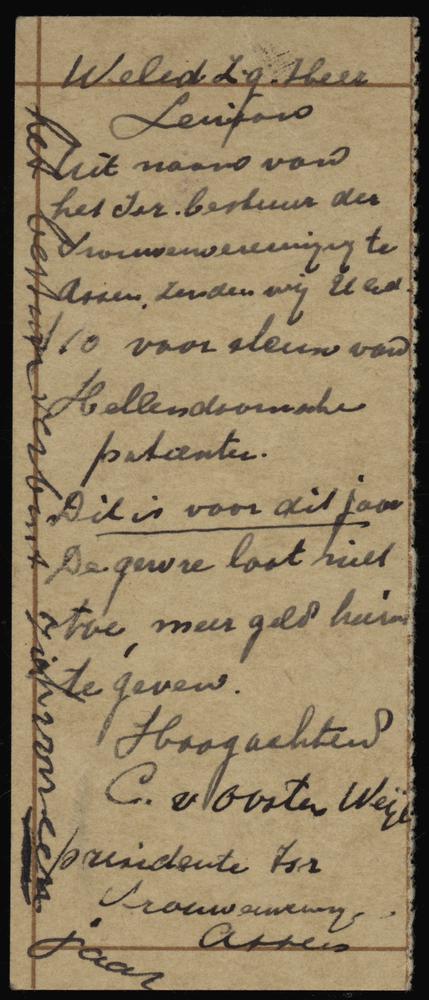 Weled Z.g. Heer
Levisson
Uit naam van
het Isr. bestuur der
Vrouwenvereeniging te
Assen, zenden wij U ed.
f 10 voor steun van
Hellendoornsche
patienten.
Dit is voor dit jaar
De geldt laat niet
toe, meer geld hierin
te geven.
Hoogachtend
C. v Oosten Weyl
presidente Isr
Vrouwenvereenig.
Assen
het bestuur verbint zich voor een jaar